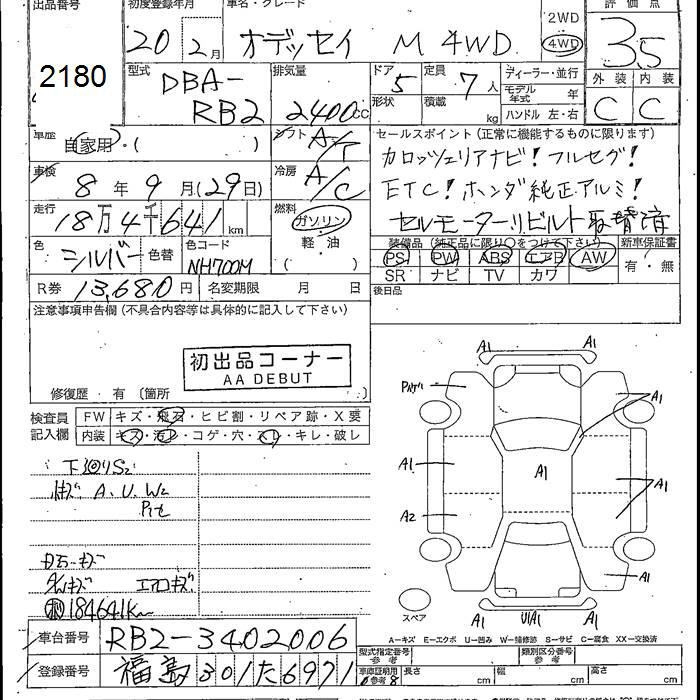 出品番号 初度登録年月 車名・グレード 評価点
20年2月 オデッセイ M 4WD 2WD 4WD 3.5
2180
型式 DBA-RB2 排気量 2400cc ドア 5 形状 定員 7人 積載 kg
ディーラー・並行 モデル年式 年 ハンドル 左・右
外装 内装
C C
車歴 自家用・( ) シフト A/T
セールスポイント(正常に機能するものに限ります)
カロッツェリアナビ!フルセグ!
ETC!ホンダ純正アルミ!
セルモーターリビルト取替済
車検 8年9月(29日) 冷房 A/C
走行 18万4千641km 燃料 ガソリン・軽・油 ( )
色 シルバー 色替 色コード NH700M
装備品(純正品に限り○をつけて下さい) 新車保証書
PS PW ABS エアB AW 有・無
SR ナビ TV カワ
R券 13,680円 名変期限 月 日
後日品
注意事項申告欄(不具合内容等は具体的に記入して下さい)
初出品コーナー
AA DEBUT
修復歴・有〔箇所
検査員記入欄 FW キズ・飛石・ヒビ割・リペア跡・X要
内装 キズ・汚レ・コゲ・穴・スレ・キレ・破レ
下廻りS2
キズ A. U. W2
エアロキズ
184641Km
A1 A1
A1
A1 A1 A1
A2
A1
A1 U1A1 A1
スペア
A-キズ E-エクボ U-凹み W-補修跡 S-サビ C-腐食 XX-交換済
車台番号 RB2-3402006
型式指定番号 参考 類別区分番号 参考
登録番号 福島301た6971
車庫証明用 参考 長さ cm 幅 cm 高さ cm